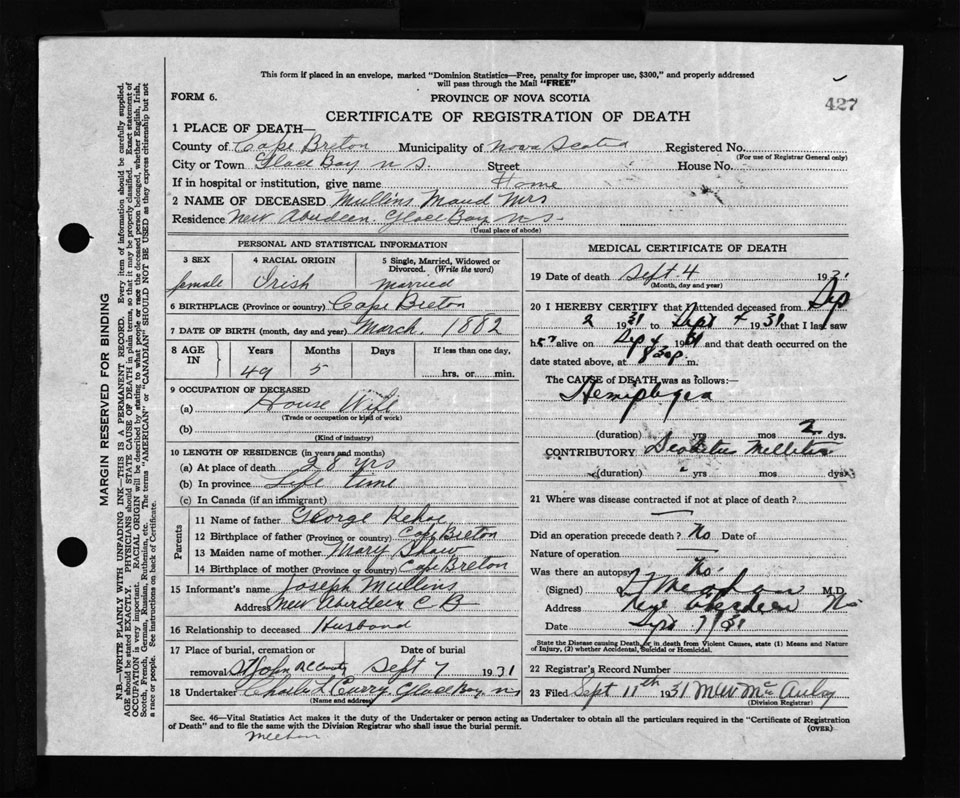 This form if placed in an envelope, marked "Dominion Statistics—Free, penalty for improper use, $300," and properly addressed
will pass through the Mail "FREE"
FORM 6.
PROVINCE OF NOVA SCOTIA
427
CERTIFICATE OF REGISTRATION OF DEATH
1 PLACE OF DEATH—
County of Cape Breton Municipality of Nova Scotia Registered No.
(For use of Registrar General only)
City or Town Glace Bay N.S. Street House No.
If in hospital or institution, give name Home
2 NAME OF DECEASED Mullins Maud Mrs
Residence New Aberdeen Glace Bay N.S.
(Usual place of abode)
PERSONAL AND STATISTICAL INFORMATION
3 SEX 4 RACIAL ORIGIN 5 Single, Married, Widowed or Divorced. (Write the word)
female Irish married
6 BIRTHPLACE (Province or country) Cape Breton
7 DATE OF BIRTH (month, day and year) March, 1882
8 AGE IN Years Months Days If less than one day,
49 5 hrs. or min.
9 OCCUPATION OF DECEASED
(a) House Wife
(Trade or occupation or kind of work)
(b)
(Kind of industry)
10 LENGTH OF RESIDENCE (in years and months)
(a) At place of death 28 yrs
(b) In province Life time
(c) In Canada (if an immigrant)
Parents
11 Name of father George Kehoe
12 Birthplace of father (Province or country) Cape Breton
13 Maiden name of mother Mary Shaw
14 Birthplace of mother (Province or country) Cape Breton
15 Informant's name Joseph Mullins
Address New Aberdeen C B
16 Relationship to deceased Husband
17 Place of burial, cremation or removal St John Date of burial Sept 7 1931
18 Undertaker Charles L Curry Glace Bay, N.S
(Name and address)
MEDICAL CERTIFICATE OF DEATH
19 Date of death Sept 4 1931
(Month, day and year)
20 I HEREBY CERTIFY that I attended deceased from Sep
2 1931 to Sept 4 1931 that I last saw
h alive on Sep 4 1931 and that death occurred on
date stated above, at 830 p m.
The CAUSE of DEATH was as follows:—
Hemiplegia
(duration) yrs mos 2 dys.
CONTRIBUTORY Diabetus Mellitus
(duration) yrs mos dys.
21 Where was disease contracted if not at place of death?
Did an operation precede death? No Date of
Nature of operation
Was there an autopsy No.
(Signed) M.D.
Address New Aberdeen NS
Date Sept 7/31
State the Disease causing Death, or in death from Violent Causes, state (1) Means and Nature
of Injury, (2) whether Accidental, Suicidal or Homicidal.
22 Registrar's Record Number
23 Filed Sept 11th 1931
(Division Registrar)
Sec. 46—Vital Statistics Act makes it the duty of the Undertaker or person acting as Undertaker to obtain all the particulars required in the "Certificate of Registration
of Death" and to file the same with the Division Registrar who shall issue the burial permit.
(OVER)
MARGIN RESERVED FOR BINDING
N.B.—WRITE PLAINLY WITH UNFADING INK—THIS IS A PERMANENT RECORD. Every item of information should be carefully supplied.
AGE should be stated EXACTLY. PHYSICIANS should STATE CAUSE OF DEATH in plain terms, so that it may be properly classified. Exact statement of
OCCUPATION is very important. RACIAL ORIGIN will be described by stating to what people or race the deceased person belonged, whether English, Irish,
Scotch, French, German, Russian, Ruthenian, etc. The terms "AMERICAN" or "CANADIAN" SHOULD NOT BE USED as they express citizenship but not
a race or people. See instructions on back of Certificate.